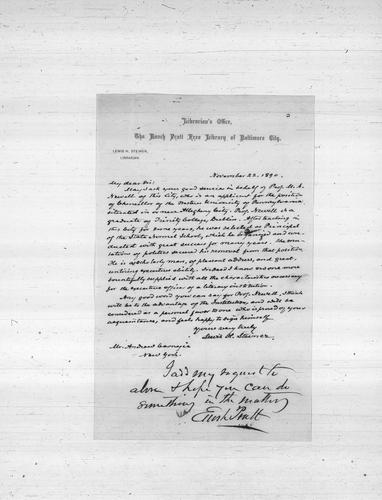 Librarian's Office,
The Enoch Pratt Free Library of Baltimore City.
LEWIS H. STEINER,
LIBRARIAN.
November 22, 1890.
My dear Sir:
May I ask your good services in behalf of Prof. M. A.
Newell of this City, who is an applicant for the position
of Chancellor of the Western University of Pennsylvania,
situated in or near Allegheny City. Prof. Newell is a
graduate of Trinity College, Dublin. After teaching in
this City for some years, he was selected as Principal
of the State Normal School, which he organized and con-
ducted with great success for many years. The mu-
tations of politics secured his removal from that position.
He is a scholarly man, of pleasant address, and great,
untiring executive ability. Indeed I know no one more
bountifully supplied with all the characteristics necessary
for the executive officer of a literary institution.
Any good word you can say for Prof. Newell, I think
will be to the advantage of the Institution, and will be
considered as a personal favor to one who is proud of your
acquaintance, and feels happy to sign himself
Yours very truly
Lewis H. Steiner.
Mr. Andrew Carnegie
New York.
I add my request to
above & hope you can do
something in the matter
Enoch Pratt